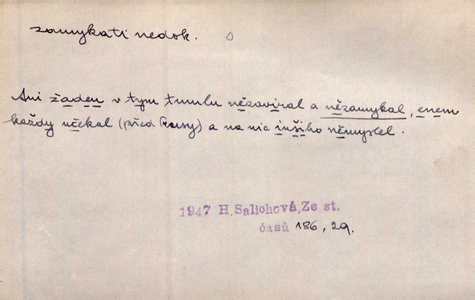 zamykati nedok.
Ani žaden v tym tmulu nězaviral a nězamykal, enem
každy učekal (před Rusy) a na nic inšiho němyslel.
1947 H. Salichová, Ze st.
časů 186, 29.